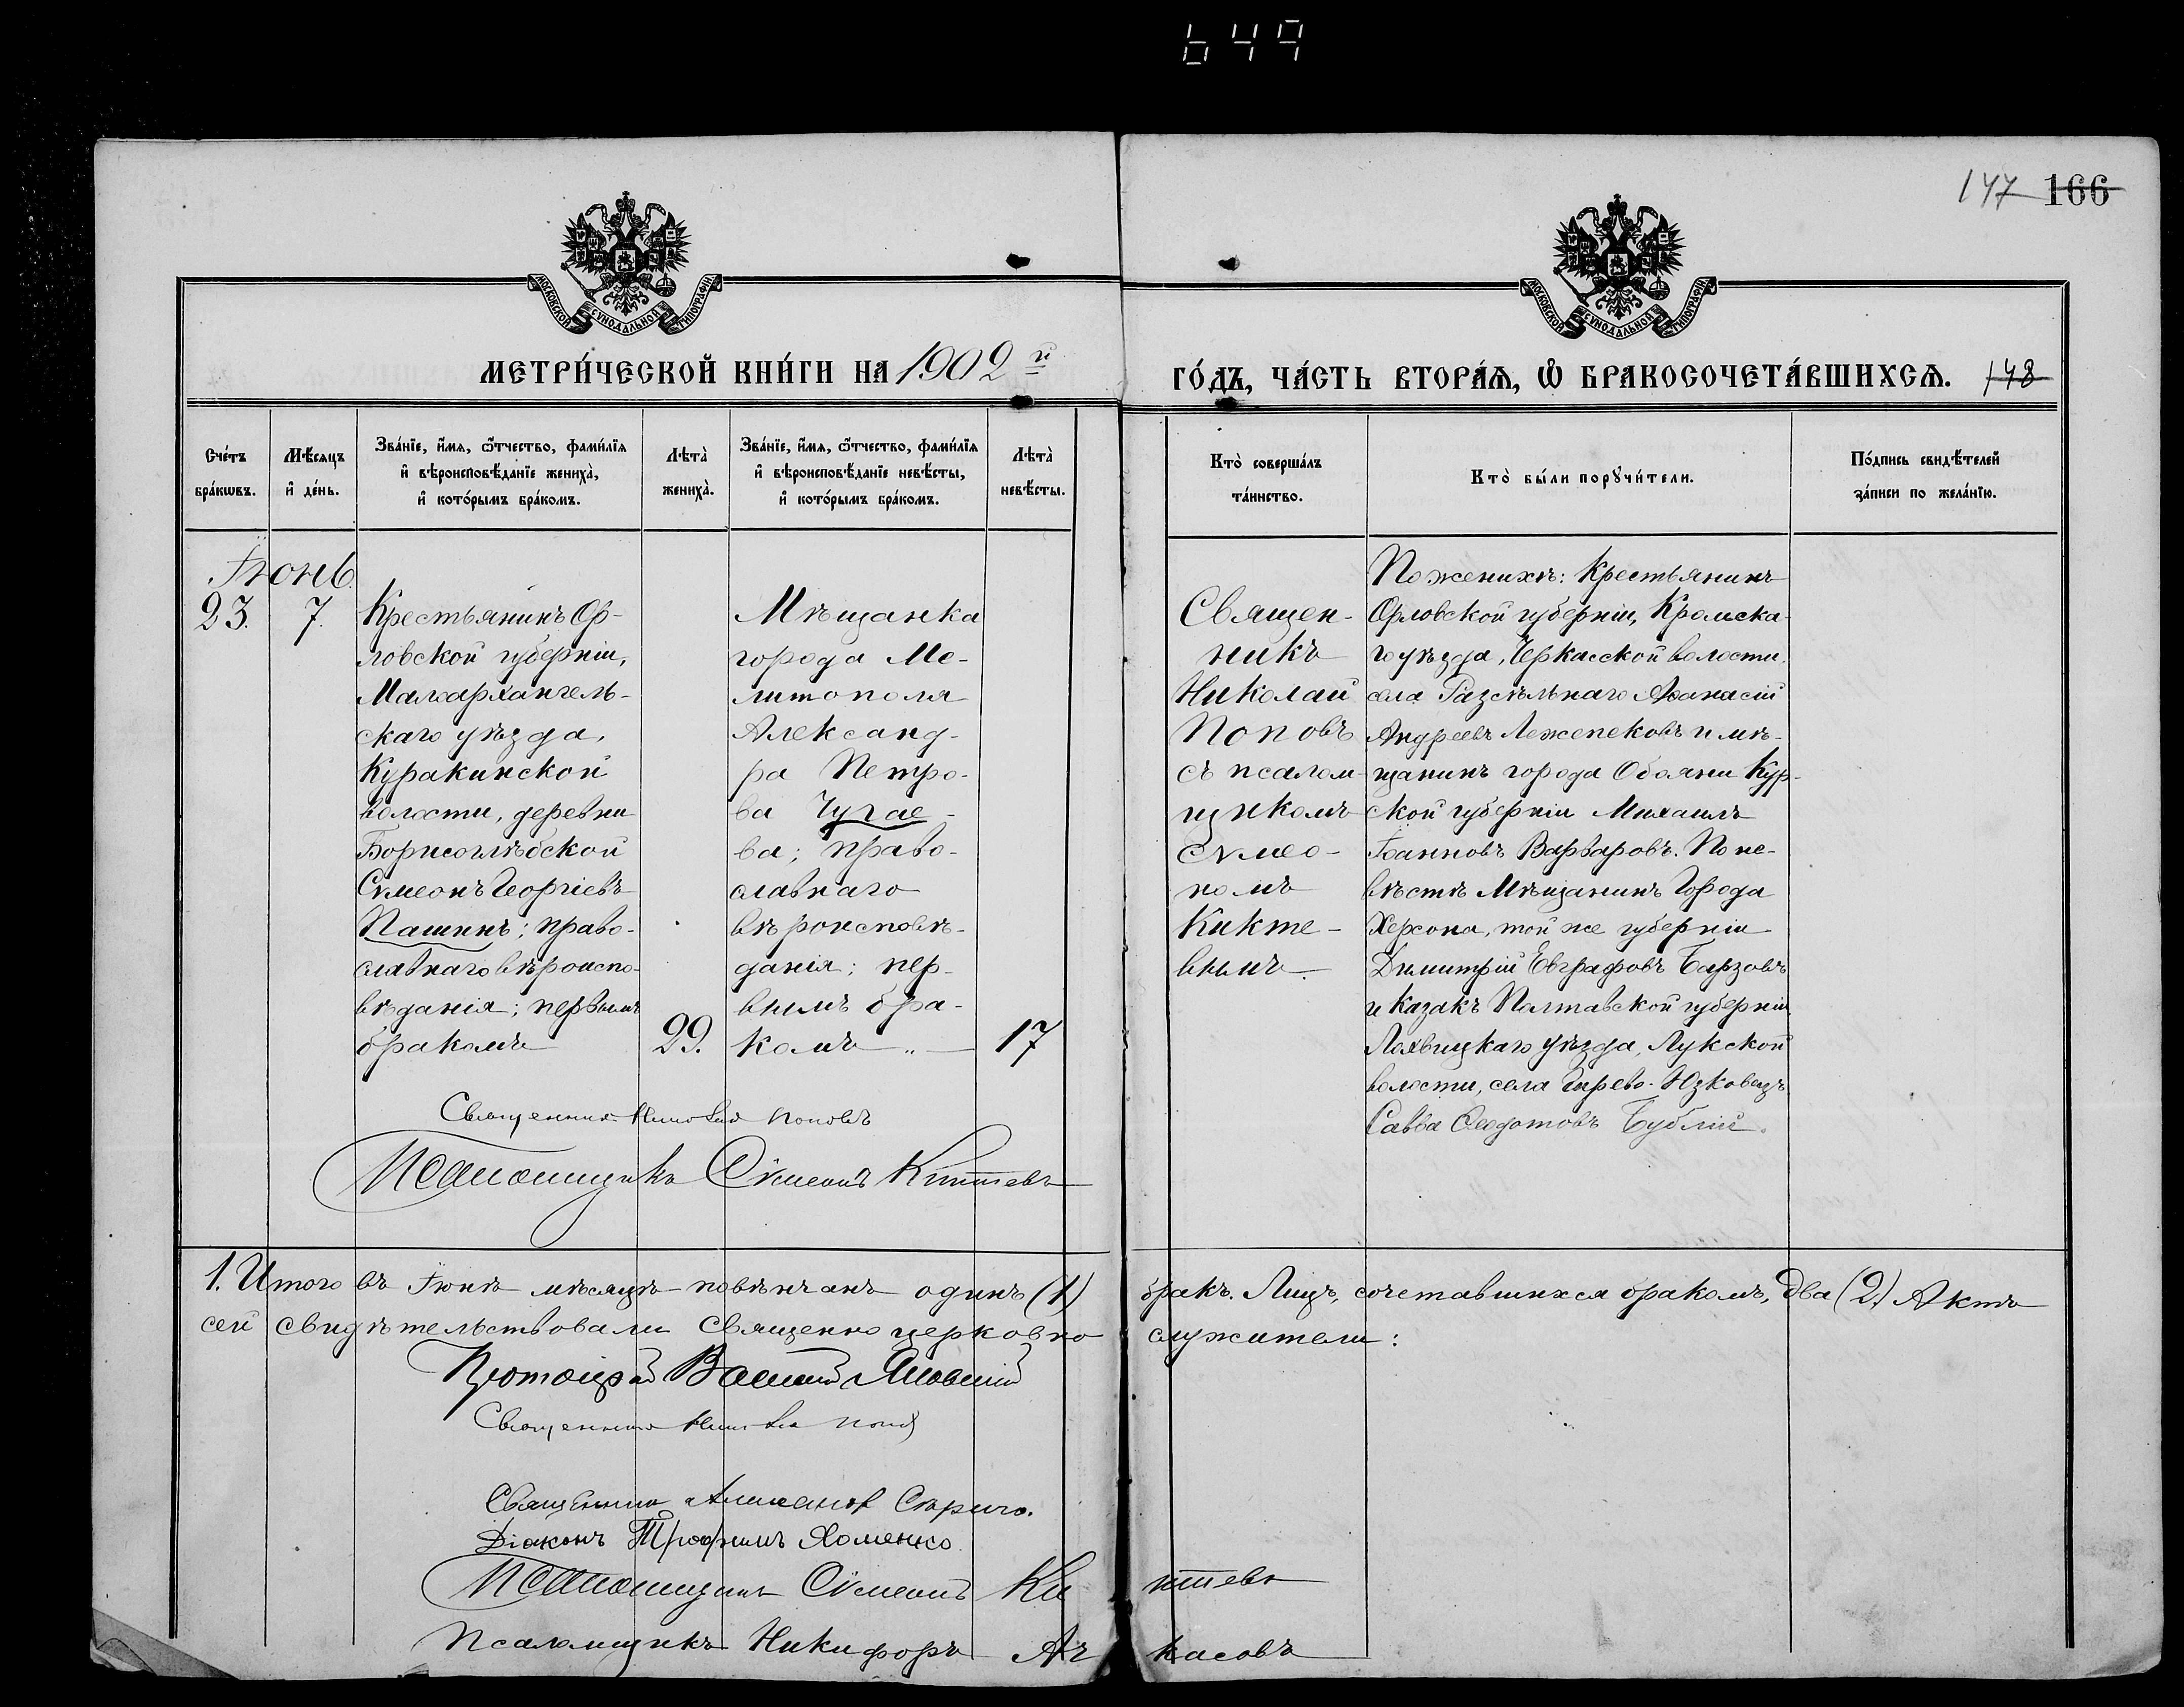 649
147 166
МОСКОВСКОЙ СУНОДАЛЬНОЙ ТИПОГРАФІИ
МОСКОВСКОЙ СУНОДАЛЬНОЙ ТИПОГРАФІИ
МЕТРИ́ЧЕСКОЙ КНИ́ГИ НА 1902 й ГО́ДЪ, ЧА́СТЬ ВТОРА́Ѧ, Ѽ БРАКОСОЧЕТА́ВШИХСѦ. 148
Сче́тъ бра́кωвъ.
Мѣ́сѧцъ и҆ де́нь.
Зва́нїе, и҆́мѧ, ѻ҆́тчество, фами́лїѧ
и҆ вѣроисповѣ́данїе жениха̀,
и҆ кото́рымъ бра́комъ.
Лѣта̀ жениха̀.
Зва́нїе, и҆́мѧ, ѻ҆́тчество, фами́лїѧ
и҆ вѣроисповѣ́данїе невѣ́сты,
и҆ кото́рымъ бра́комъ.
Лѣта̀ невѣ́сты.
Кто̀ соверша́лъ та́инство.
Кто̀ бы́ли порꙋчи́тели.
По́дпись свидѣ́телей
за́писи по жела́нїю.
Іюнь.
23. 7.
Крестьянинъ Ор-
ловской губерніи,
Малоархангель-
скаго уѣзда,
Куракинской
волости, деревни
Борисоглѣбской
Сѵмеонъ Георгіевъ
Пашинъ; право-
славнаго вѣроиспо-
вѣданія; первымъ
бракомъ
29.
Мѣщанка
города Ме-
литополя
Александ-
ра Петро-
ва Чугае-
ва; право-
славнаго
вѣроисповѣ-
данія; пер-
вымъ бра-
комъ
17
Священ-
никъ
Николай
Поповъ
съ псалом-
щикомъ
Сѵмео-
номъ
Кикте-
вымъ.
По женихѣ: Крестьянинъ
Орловской губерніи, Кромска-
го уѣзда, Черкасской волости,
села Разсѣльнаго Аѳанасій
Андреевъ Лежепековъ и мѣ-
щанинъ города Обояни Кур-
ской губерніи Михаилъ
Іоанновъ Варваровъ. По не-
вѣстѣ Мѣщанинъ Города
Херсона, той же губерніи
Димитрій Евграфовъ Барзовъ
и Казакъ Полтавской губерніи
Лохвицкаго уѣзда, Лукской
волости, села Гирево-Юзковецъ
Савва Ѳеодотовъ Бублій.
Священникъ Николай Поповъ
Псаломщикъ Сѵмеонъ Киктевъ
1. Итого въ Іюнѣ мѣсяцѣ повѣнчанъ одинъ (1) бракъ. Лицъ, сочетавшихся бракомъ, два (2.) Актъ
сей свидѣтельствовали Священно церковно служители:
Протоіерей Василій
Священникъ Николай Поповъ
Священникъ
Діаконъ Трофимъ Хоменко
Псаломщикъ Сѵмеонъ Киктевъ
Псаломщикъ Никифоръ Ачкасовъ